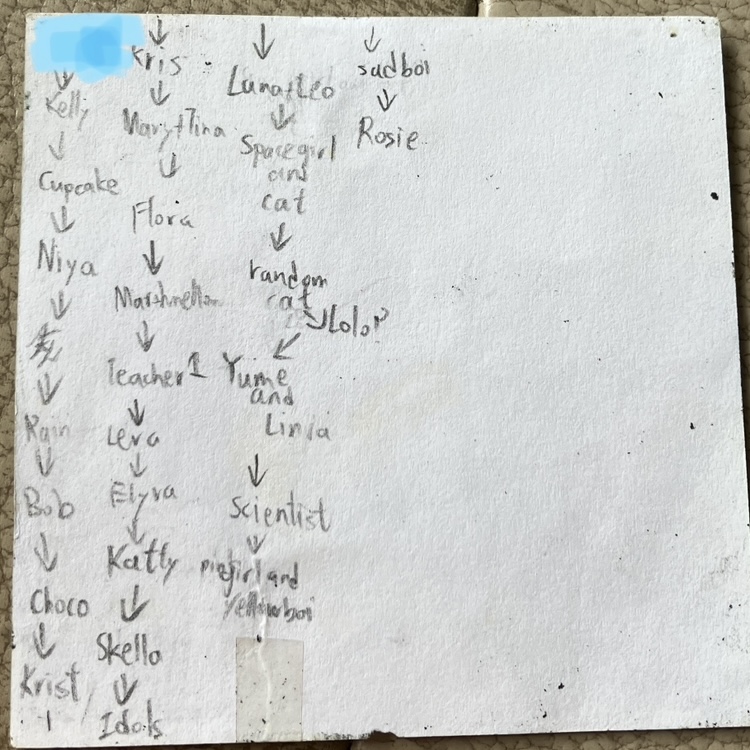 Kelly
Cupcake
Niya
Rain
Bob
Choco
Krist
Kris
Mary+Tina
Flora
Teacher 1
Lera
Elyra
Katty
Skello
Idols
Luna+Leo
Spacegirl
and
cat
random
cat
Lolo?
Yume
and
Linia
Scientist
and
yellowboi
sadboi
Rosie